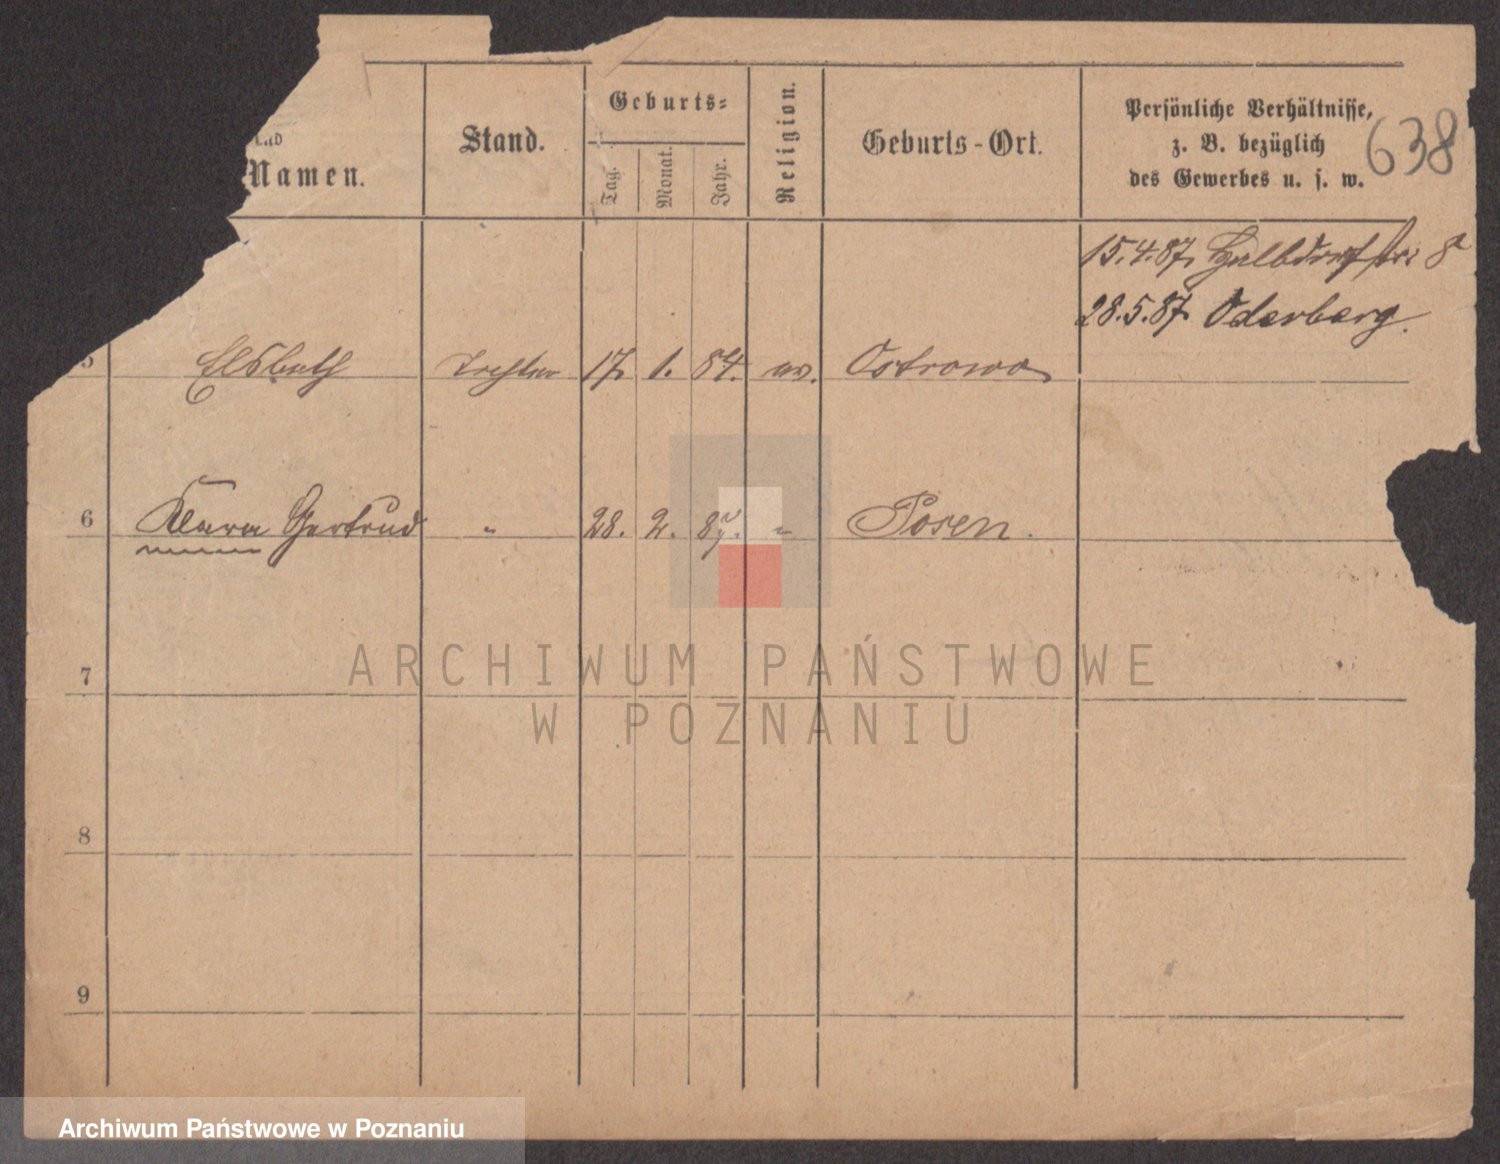 und
Namen.
Stand.
Geburts=
Tag.
Monat.
Jahr.
Religion.
Geburts-Ort.
Persönliche Verhältnisse,
z. B. bezüglich
des Gewerbes u. s. w.
638
15.4.87. Halbdorfstr: 8
28.5.87. Oderberg.
5 Elsbeth Tochter 17. 1. 84. ev. Ostrowo
6 Klara Gertrud " 28. 2. 87. " Posen.
7
8
9
ARCHIWUM PAŃSTWOWE
W POZNANIU
Archiwum Państwowe w Poznaniu